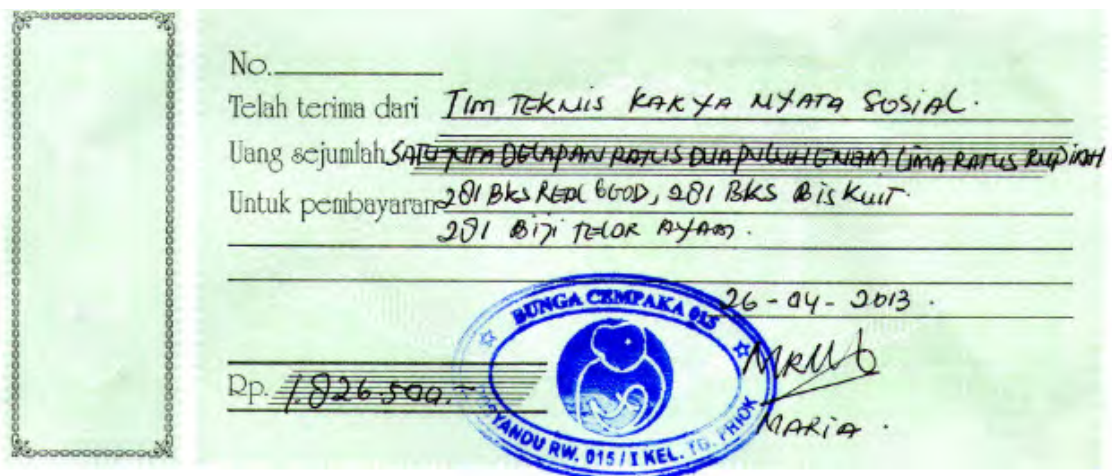 No.
Telah terima dari TIM TEKNIS KARYA NYATA SOSIAL.
Uang sejumlah SATU JUTA DELAPAN RATUS DUA PULUH ENAM LIMA RATUS RUPIAH
Untuk pembayaran 281 BKS REAL GOOD, 281 BKS BISKUIT
281 BIJI TELOR AYAM.
26-04-2013.
BUNGA CEMPAKA 015
POSYANDU RW. 015 / I KEL. TG. PRIOK
Rp. 1.826.500.-
MARIA.